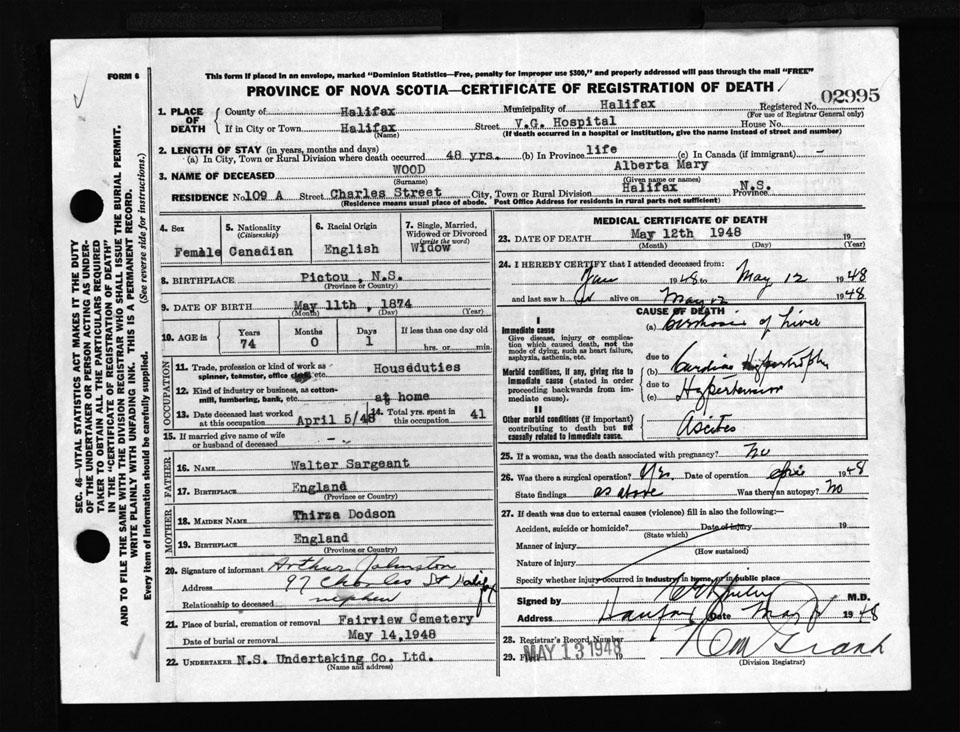 FORM 6
This form if placed in an envelope, marked "Dominion Statistics—Free, penalty for improper use $300," and properly addressed will pass through the mail "FREE"
PROVINCE OF NOVA SCOTIA—CERTIFICATE OF REGISTRATION OF DEATH
02995
SEC. 46—VITAL STATISTICS ACT MAKES IT THE DUTY
OF THE UNDERTAKER OR PERSON ACTING AS UNDER-
TAKER TO OBTAIN ALL THE PARTICULARS REQUIRED
IN THE "CERTIFICATE OF REGISTRATION OF DEATH"
AND TO FILE THE SAME WITH THE DIVISION REGISTRAR WHO SHALL ISSUE THE BURIAL PERMIT.
WRITE PLAINLY WITH UNFADING INK. THIS IS A PERMANENT RECORD.
Every item of information should be carefully supplied. (See reverse side for instructions.)
1. PLACE OF DEATH
County of Halifax Municipality of Halifax Registered No.
(For use of Registrar General only)
If in City or Town Halifax Street V.G. Hospital House No.
(Name) (If death occurred in a hospital or institution, give the name instead of street and number)
2. LENGTH OF STAY (in years, months and days)
(a) In City, Town or Rural Division where death occurred 48 yrs. (b) In Province life (c) In Canada (if immigrant) -
3. NAME OF DECEASED WOOD Alberta Mary
(Surname) (Given name or names)
RESIDENCE No. 109 A Street Charles Street City, Town or Rural Division Halifax Province N.S.
(Residence means usual place of abode. Post Office Address for residents in rural parts not sufficient)
4. Sex Female
5. Nationality (Citizenship) Canadian
6. Racial Origin English
7. Single, Married, Widowed or Divorced (write the word) Widow
8. BIRTHPLACE Pictou, N.S.
(Province or Country)
9. DATE OF BIRTH May 11th, 1874
(Month) (Day) (Year)
10. AGE in Years 74 Months 0 Days 1 If less than one day old hrs. or min.
OCCUPATION
11. Trade, profession or kind of work as spinner, teamster, office clerk, etc. Houseduties
12. Kind of industry or business, as cotton-mill, lumbering, bank, etc. at home
13. Date deceased last worked at this occupation April 5/48 14. Total yrs. spent in this occupation 41
15. If married give name of wife or husband of deceased - -
FATHER
16. NAME Walter Sargeant
17. BIRTHPLACE England
(Province or Country)
MOTHER
18. MAIDEN NAME Thirza Dodson
19. BIRTHPLACE England
(Province or Country)
20. Signature of informant Arthur Johnston
Address 97 Charles St Halifax
Relationship to deceased nephew
21. Place of burial, cremation or removal Fairview Cemetery
Date of burial or removal May 14,1948
22. UNDERTAKER N.S. Undertaking Co. Ltd.
(Name and address)
MEDICAL CERTIFICATE OF DEATH
23. DATE OF DEATH May 12th 1948 19
(Month) (Day) (Year)
24. I HEREBY CERTIFY that I attended deceased from:
Jan 1948 to May 12 1948
and last saw h alive on May 12 1948
CAUSE OF DEATH
I
Immediate cause
Give disease, injury or complication which caused death, not the mode of dying, such as heart failure, asphyxia, asthenia, etc.
(a) Cirrhosis of Liver
due to
Morbid conditions, if any, giving rise to immediate cause (stated in order proceeding backwards from immediate cause).
(b) Cardiac Hypertrophy
due to
(c) Hypertension
II
Other morbid conditions (if important) contributing to death but not causally related to immediate cause.
Ascites
25. If a woman, was the death associated with pregnancy? No
26. Was there a surgical operation? Yes Date of operation 1948
State findings as above Was there an autopsy? No
27. If death was due to external causes (violence) fill in also the following:—
Accident, suicide or homicide? Date of injury 19
(State which)
Manner of injury
(How sustained)
Nature of injury
Specify whether injury occurred in industry, in home, or in public place
Signed by M.D.
Halifax Date May 1948
28. Registrar's Record Number
29. MAY 13 1948 19
(Division Registrar)